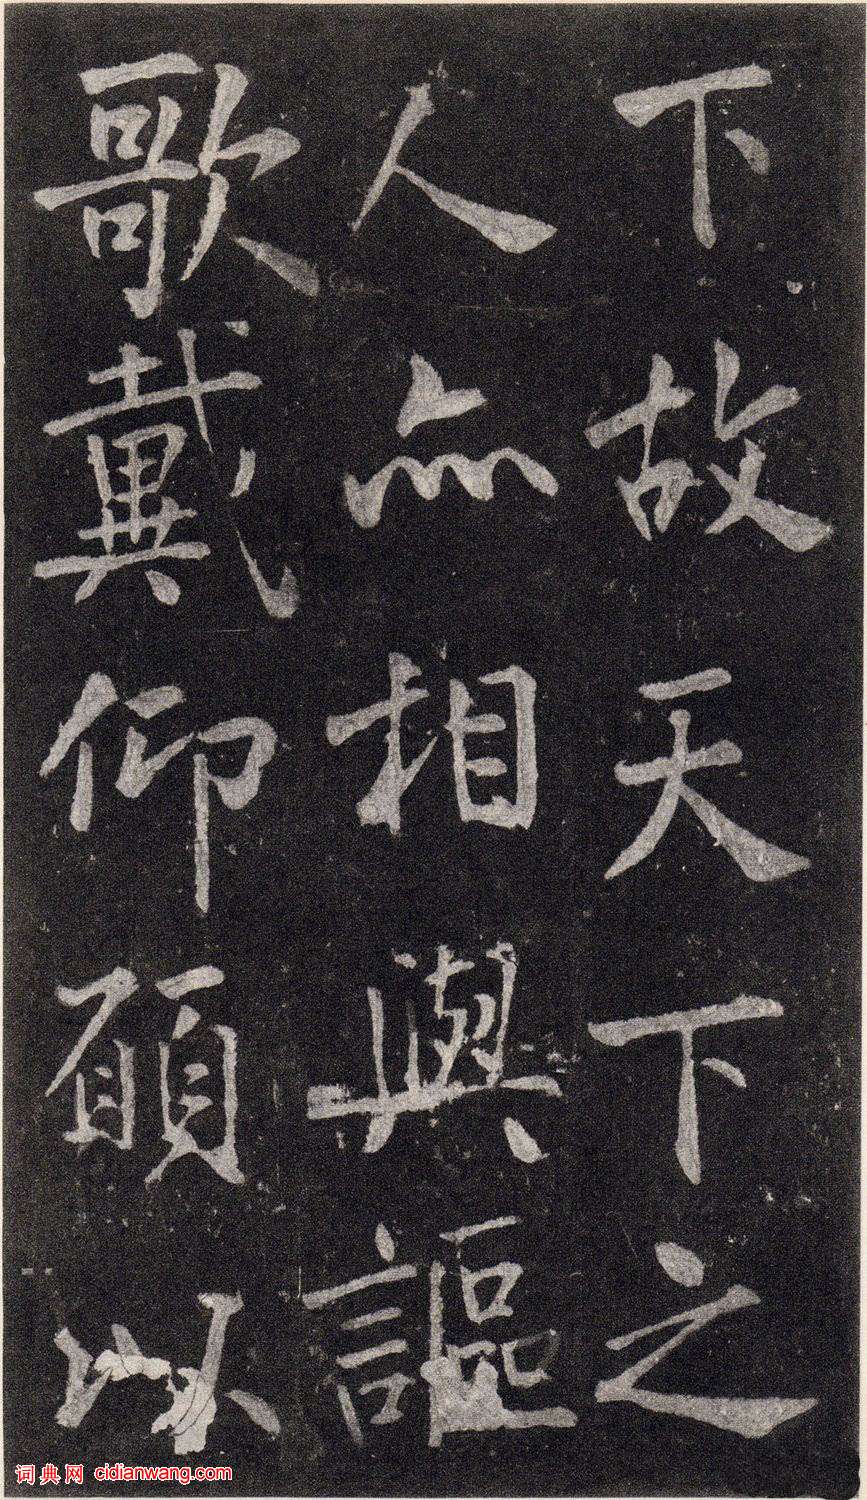 下故天下之
人亦相與謳
歌戴仰願以
词典网 cidianwang.com